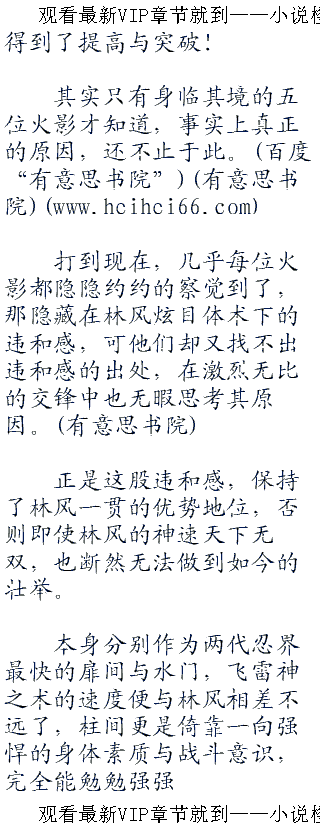 观看最新VIP章节就到——小说
得到了提高与突破！
其实只有身临其境的五
位火影才知道，事实上真正
的原因，还不止于此。(百度
“有意思书院”)(有意思书
院)(www.hcihci66.com)
打到现在，几乎每位火
影都隐隐约约的察觉到了，
那隐藏在林风炫目体术下的
违和感，可他们却又找不出
违和感的出处，在激烈无比
的交锋中也无暇思考其原
因。(有意思书院)
正是这股违和感，保持
了林风一贯的优势地位，否
则即使林风的神速天下无
双，也断然无法做到如今的
壮举。
本身分别作为两代忍界
最快的扉间与水门，飞雷神
之术的速度便与林风相差不
远了，柱间更是倚靠一向强
悍的身体素质与战斗意识，
完全能勉勉强强
观看最新VIP章节就到——小说